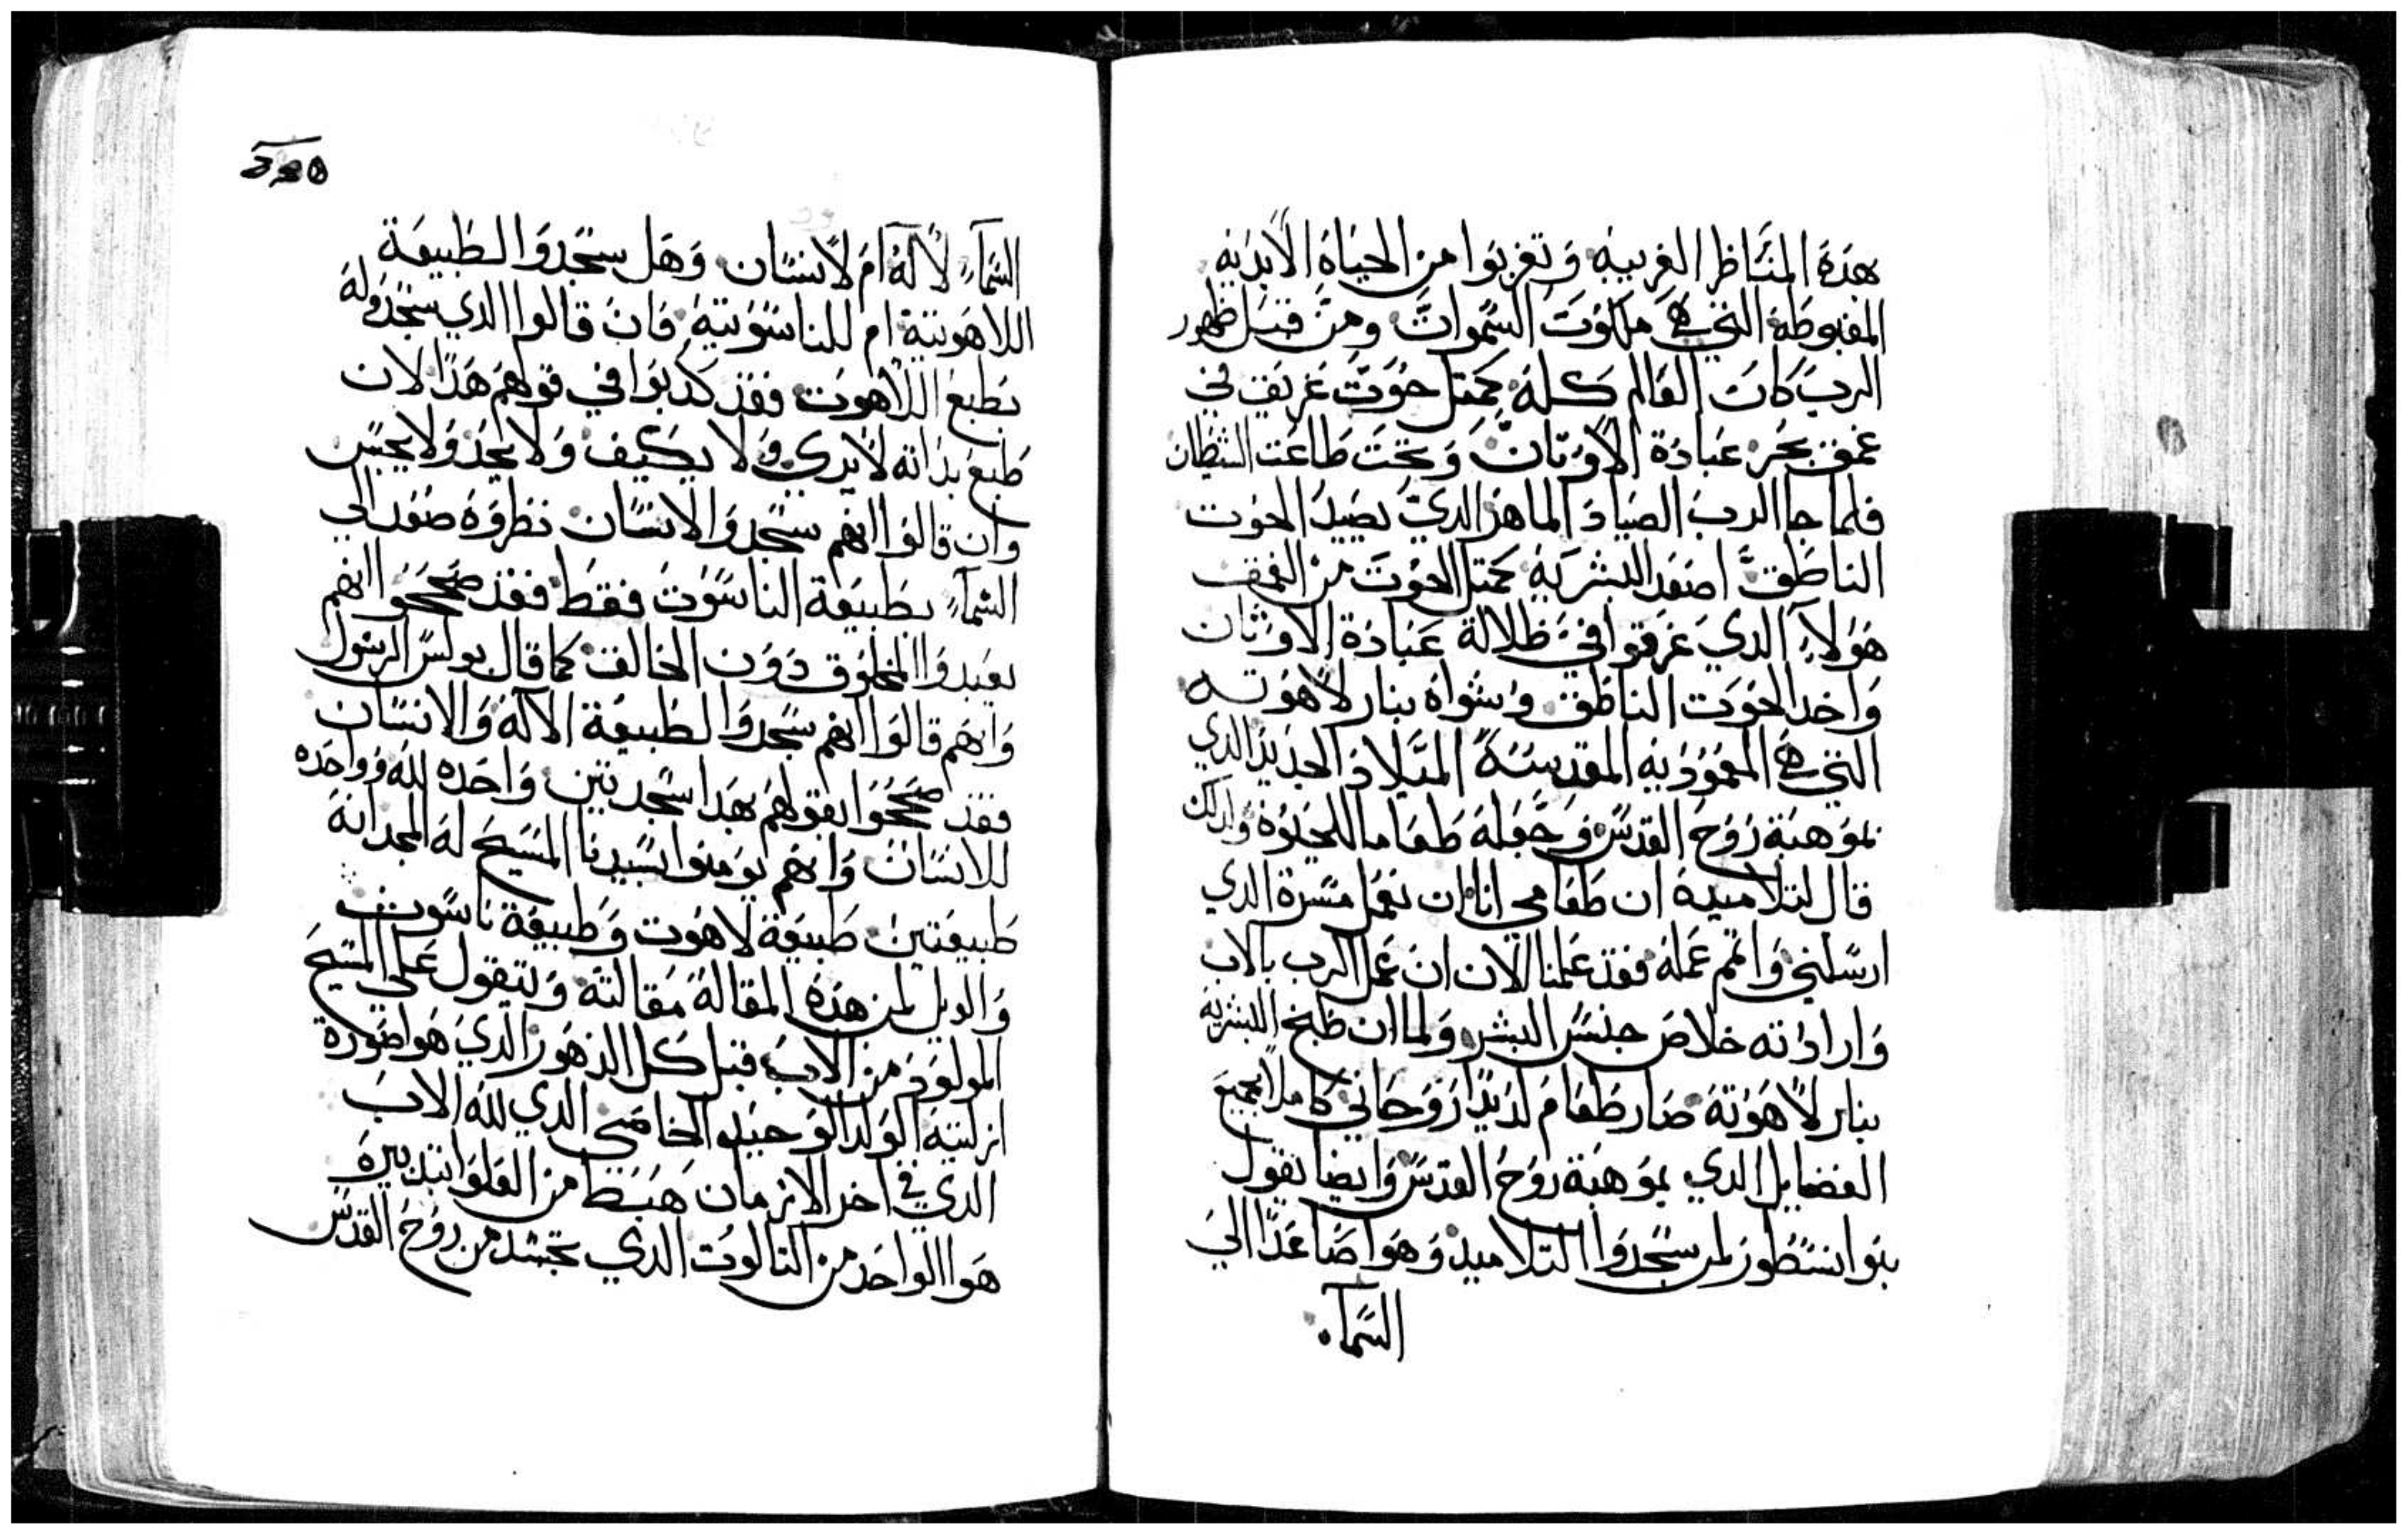 هذه المناظر الغريبه وتغربوا من الحياة الابديه
المغبوطه التي هي ملكوت السموات ومن قبل ظهور
الرب كان العالم كله كمتل حوت غريق في
عمق بحر عبادة الاوتان وتحت طاعت الشيطان
فلما جا الرب الصياد الماهر الدي يصيد الحوت
الناطق اصعد البشريه كمتل الحوت من العمق
هولاء الدي غرقوا في ظلالة عبادة الاوثان
واخد الحوت الناطق وشواه بنار لاهوته
التي هي المعموديه المقدسة الميلاد الجديد الدي
بموهبة روح القدس وجعله طعاما للحلوه ولدلك
قال لتلاميده ان طعامي انا ان نعمل مسرة الدي
ارسلني واتمم عمله فقد علمنا الان ان عمل الرب بالاب
وارادته خلاص جنس البشر ولما ان طبخ البشريه
بنار لاهوته صار طعام لديدا روحاني كاملا بجميع
الفضايل الدي بموهبة روح القدس وايضا نقول
بنوا نسطور لمن سجدوا التلاميد وهوا صاعدا الي
السماء
السماء لالاه ام لانسان وهل سجدوا لطبيعة
اللاهوتية ام للناسوتيه فان قالوا الدي سجدوا له
بطبع اللاهوت فقد كدبوا في قولهم هذا لان
طبع بداته لا يرى ولا يكيف ولا يحد ولا يجس
وان قالوا انهم سجدوا لانسان نظروه صعد الي
السماء بطبيعة الناسوت فقط فقد صححوا انهم
يعبدوا المخلوق دون الخالق كما قال بولس الرسول
وانهم قالوا انهم سجدوا لطبيعة الاله والانسان
فقد صححوا بقولهم هدا سجدتين واحده لله وواحده
للانسان وانهم يومنوا بسيدنا المسيح له المجد انه
طبيعتين طبيعة لاهوت وطبيعة ناسوت
والويل لمن هذه المقالة مقالته ولنقول على المسيح
المولود من الاب قبل كل الدهور الدي هوا صورة
ازليته الولد الوحيد الخاصي الدي لله الاب
الدي في اخر الازمان هبط من العلو بتدبيره
هوا الواحد من التالوت الدي تجسد من روح القدس